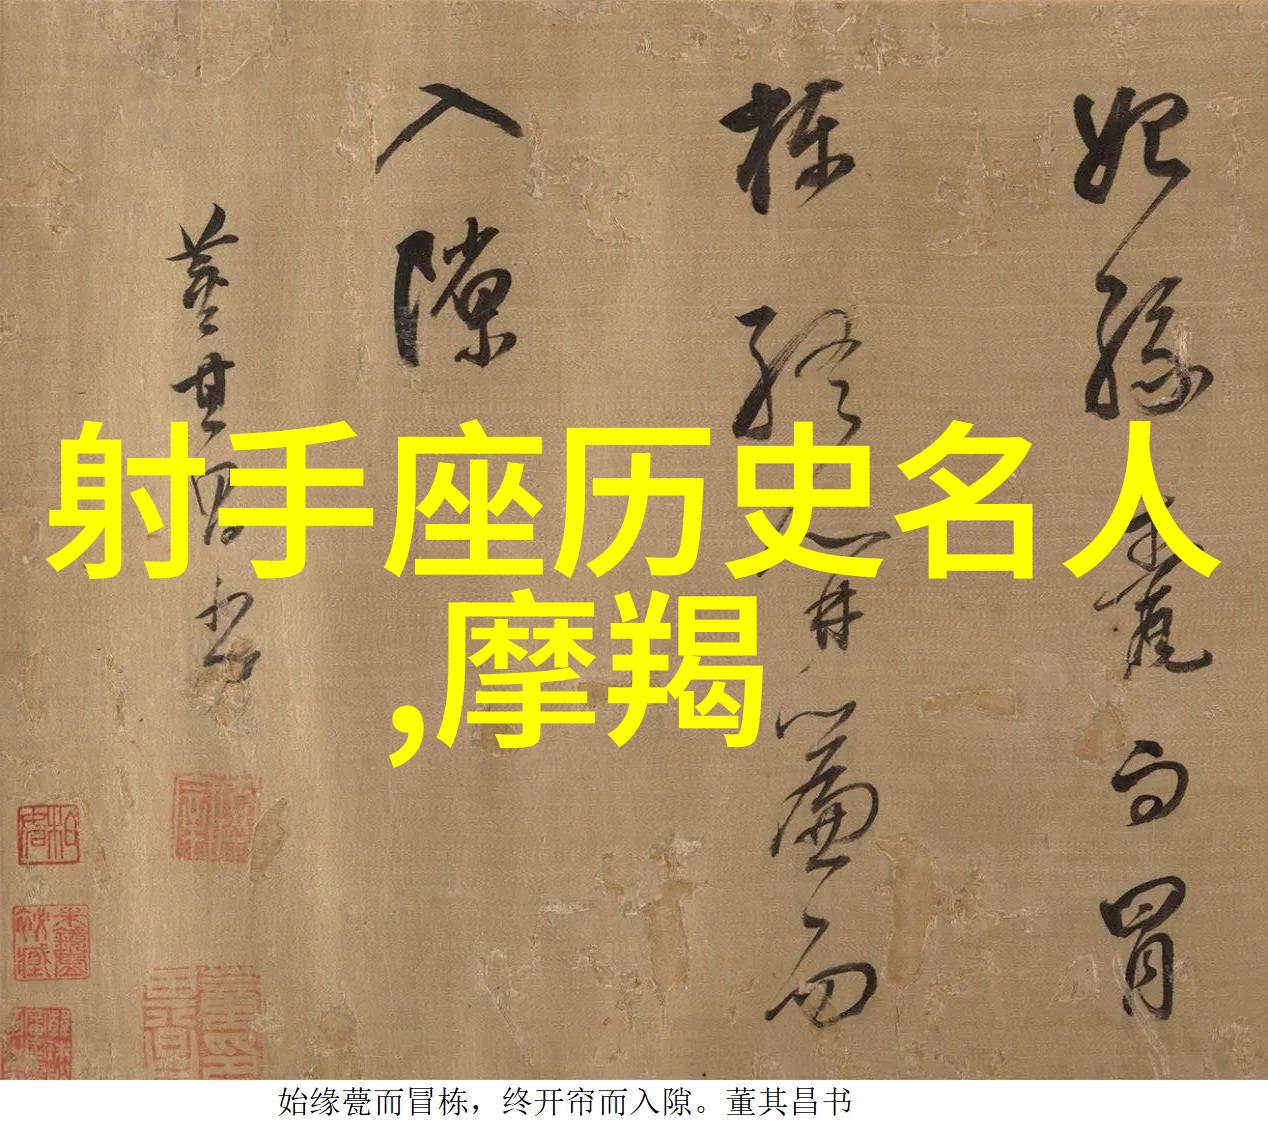 射手座历史名人
,摩羯
始缘甍而冒
栋终开簾而
入隙
董其昌书
始缘甍而冒栋，终开帘而入隙。董其昌书